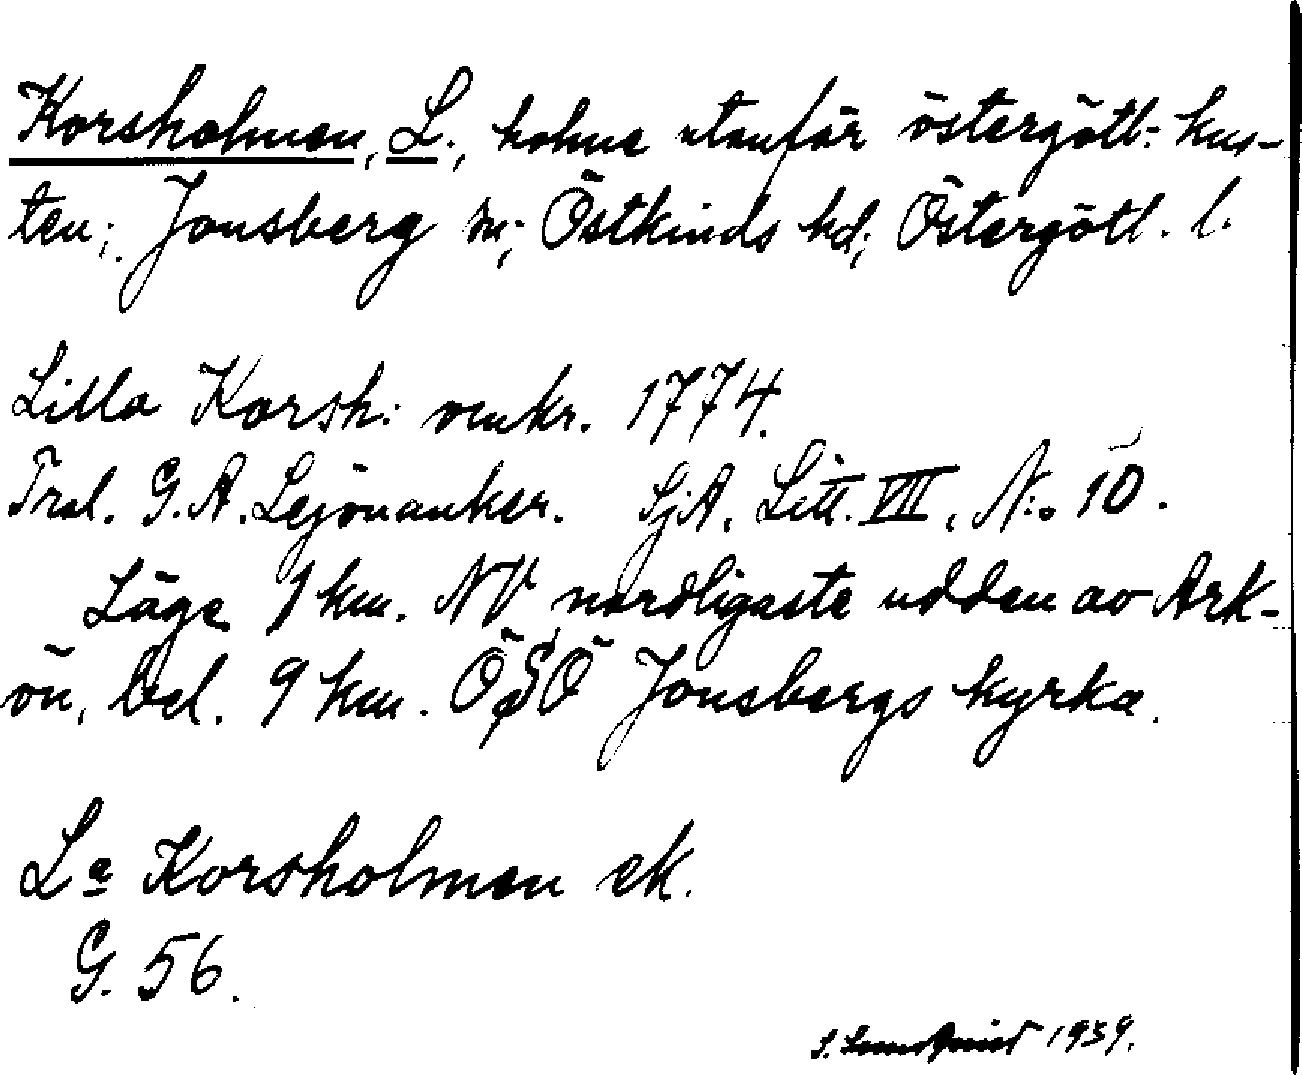 Korsholmen, L., holme utanför östergötl: kus-
ten; Jonsberg sn; Östkinds hd; Östergötl. l.
Lilla Korsh: omkr. 1774.
Trol. G. A. Lejonanker. SjA, Litt. VIII, N:o 10.
Läge 1 km. NV nordligaste udden av Ark-
ön, bel. 9 km. ÖSÖ Jonsbergs kyrka.
La Korsholmen ek.
G. 56.
S. 1939.